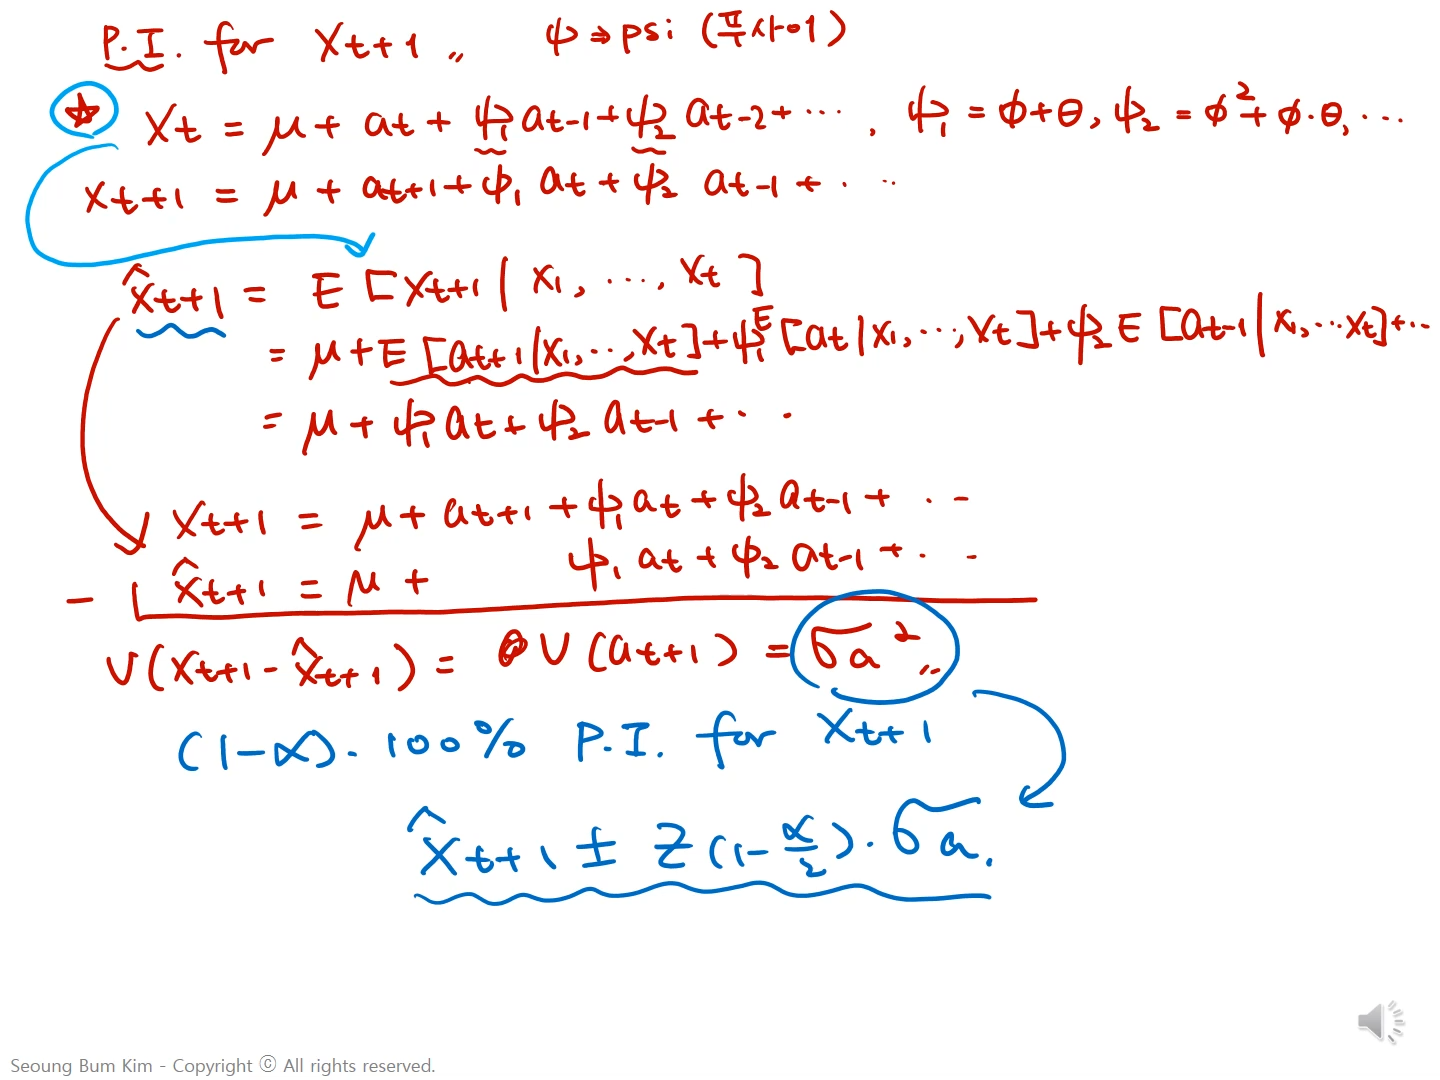 P.I. for Xt+1 ,, ψ ⇒ psi (프사이)
☆ Xt = μ + at + ψ1 at-1 + ψ2 at-2 + ··· , ψ1 = φ+θ, ψ2 = φ² + φ·θ, ···
Xt+1 = μ + at+1 + ψ1 at + ψ2 at-1 + ···
X̂t+1 = E [Xt+1 | X1, ···, Xt]
= μ + E [at+1 | X1, ··, Xt] + ψ1 E [at | X1, ···, Xt] + ψ2 E [at-1 | X1, ··· Xt] + ···
= μ + ψ1 at + ψ2 at-1 + ···
Xt+1 = μ + at+1 + ψ1 at + ψ2 at-1 + ···
- X̂t+1 = μ + ψ1 at + ψ2 at-1 + ···
V(Xt+1 - X̂t+1) = V(at+1) = σa² ,,
(1-α)·100% P.I. for Xt+1
X̂t+1 ± Z(1-α/2)·σa.
Seoung Bum Kim - Copyright ⓒ All rights reserved.